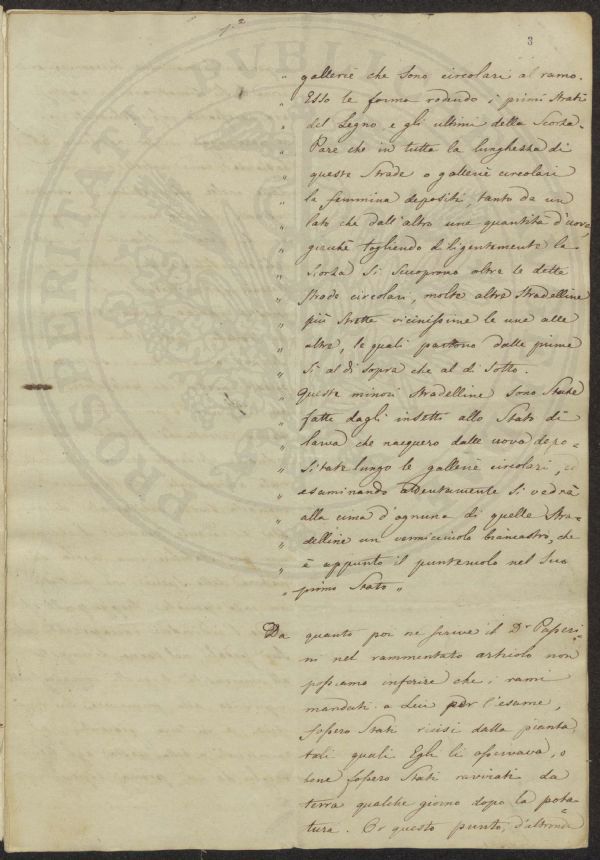 1.ª
3
„ gallerie che sono circolari al ramo.
„ Esso le forma rodendo i primi strati
„ del legno, e gli ultimi della scorza.
„ Pare che in tutta la lunghezza di
„ queste strade o gallerie circolari
„ la femmina depositi, tanto da un
„ lato che dall'altro una quantità d'uova
„ giacchè togliendo diligentemente la
„ scorza si scuoprono oltre le dette
„ strade circolari, molte altre stradelline
„ più strette vicinissime le une alle
„ altre, le quali partono dalle prime
„ sì al di sopra che al di sotto.
„ Queste minori stradelline sono state
„ fatte dagli insetti allo stato di
„ larva che nacquero dalle uova depo=
„ sitate lungo le gallerie circolari, ed
„ esaminando attentamente si vedrà
„ alla cima d'ognuna di quelle stra=
„ delline un vermicciuolo biancastro, che
„ è appunto il punteruolo nel suo
„ primo stato „
Da quanto poi ne scrive il Dr. Passeri=
ni nel rammentato articolo non
possiamo inferire che i rami
mandati a Lui per l'esame,
fossero stati recisi dalla pianta
tali quali Egli li osservava, o
bene fossero stati ravviati da
terra qualche giorno dopo la pota=
tura. Or questo punto, d'altronde
PROSPERITATI PUBLICAE